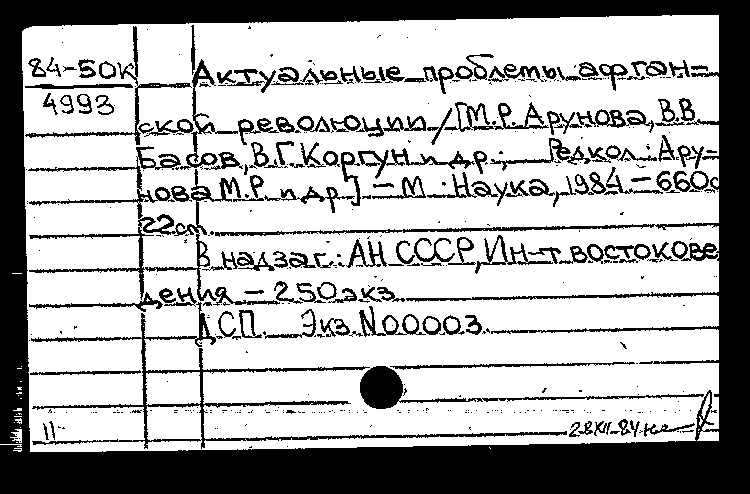 84-50К Актуальные проблемы афган=
4993
ской революции / [М.Р. Арунова, В.В
Басов, В.Г. Коргун и др.; Редкол.: Ару-
нова М.Р. и др.] - М.: Наука, 1984 - 660с
22см.
В надзаг.: АН СССР, Ин-т востокове
дения - 250экз.
ДСП. Экз. N00003.
11 28XII-84